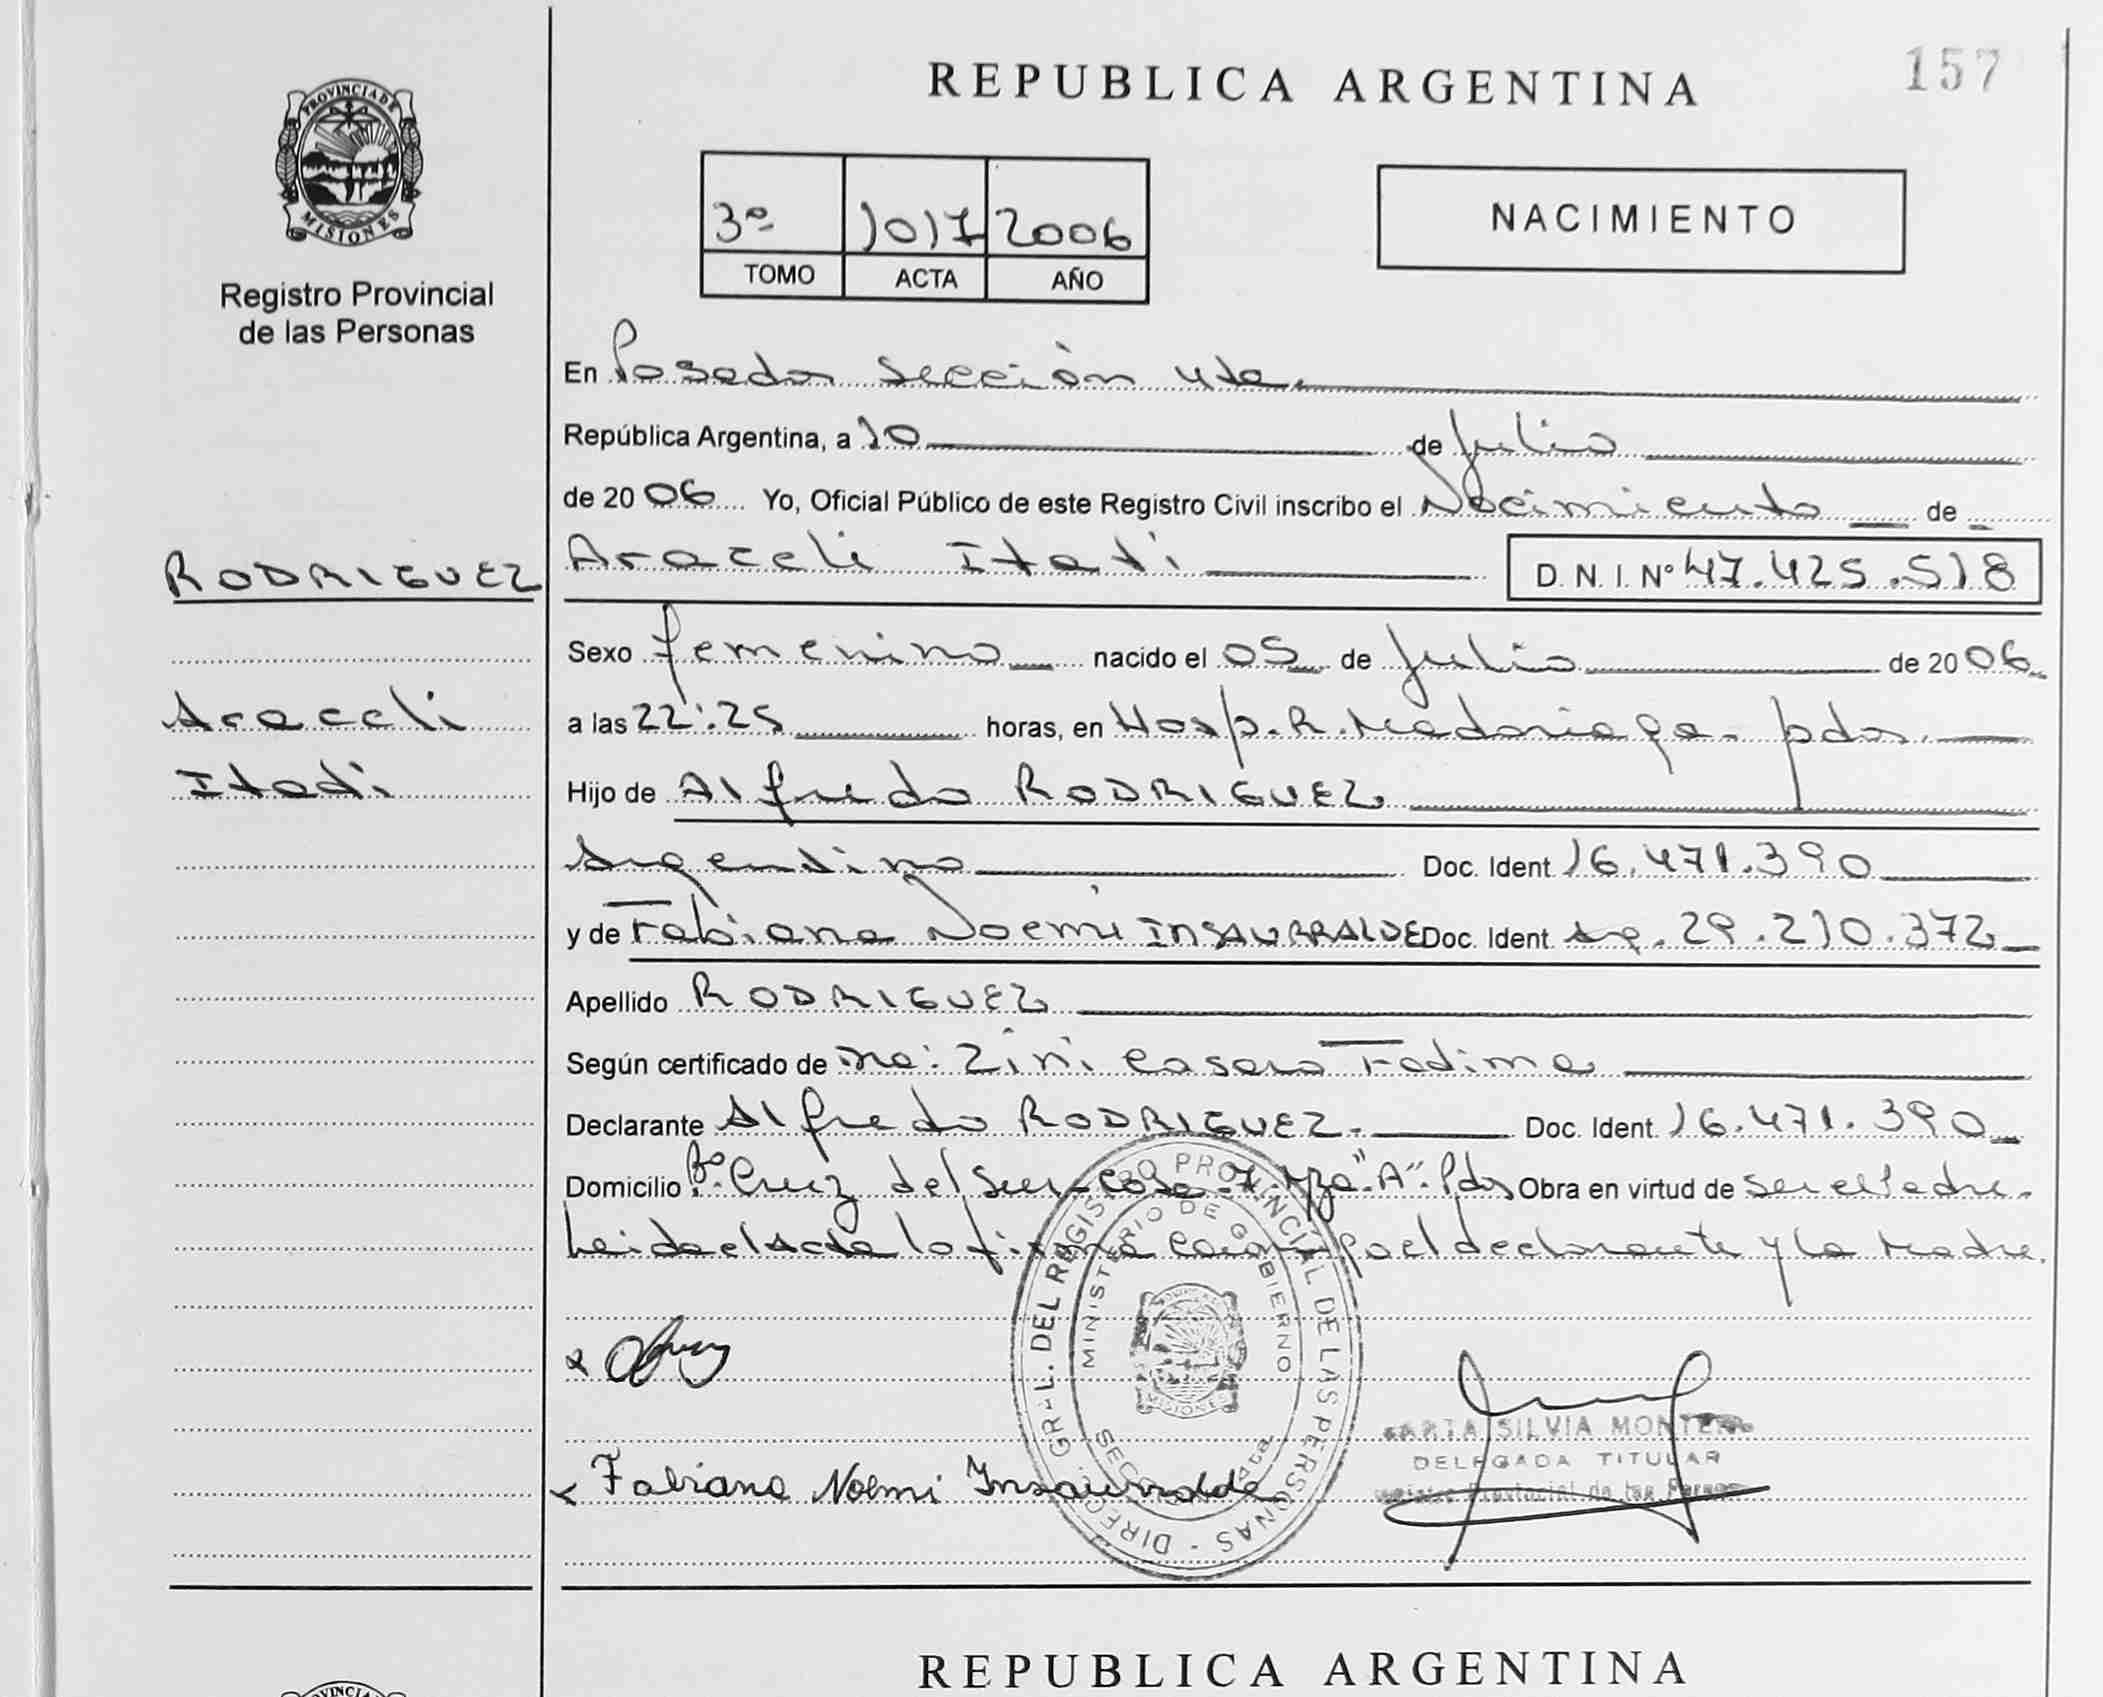 REPUBLICA ARGENTINA
157
PROVINCIA DE
MISIONES
Registro Provincial
de las Personas
3º 1017 2006
TOMO ACTA AÑO
NACIMIENTO
En Posadas Sección 4ta.
República Argentina, a 10 de Julio
de 2006 Yo, Oficial Público de este Registro Civil inscribo el Nacimiento de
RODRIGUEZ
Araceli Itati
D. N. I. Nº 47.425.518
Sexo femenino nacido el 05 de Julio de 2006
Araceli
a las 22:25 horas, en Hosp. R. Madariaga - pdas.
Itati
Hijo de Alfredo RODRIGUEZ
Argentino Doc. Ident 16.471.390
y de Fabiana Noemi INSAURRALDE Doc. Ident Arg. 29.210.372
Apellido RODRIGUEZ
Según certificado de Zini Casaro Fatima
Declarante Alfredo RODRIGUEZ. Doc. Ident. 16.471.390
Domicilio Bº. Cruz del Sur - Casa 7 Mza "A". Pdas Obra en virtud de ser el Padre.
Leida el acta la firma el declarante y la Madre.
Fabiana Noemi Insaurralde
DIREC. GRAL. DEL REGISTRO PROVINCIAL DE LAS PERSONAS
MINISTERIO DE GOBIERNO
MISIONES
SILVIA
DELEGADA TITULAR
Provincial de las
REPUBLICA ARGENTINA